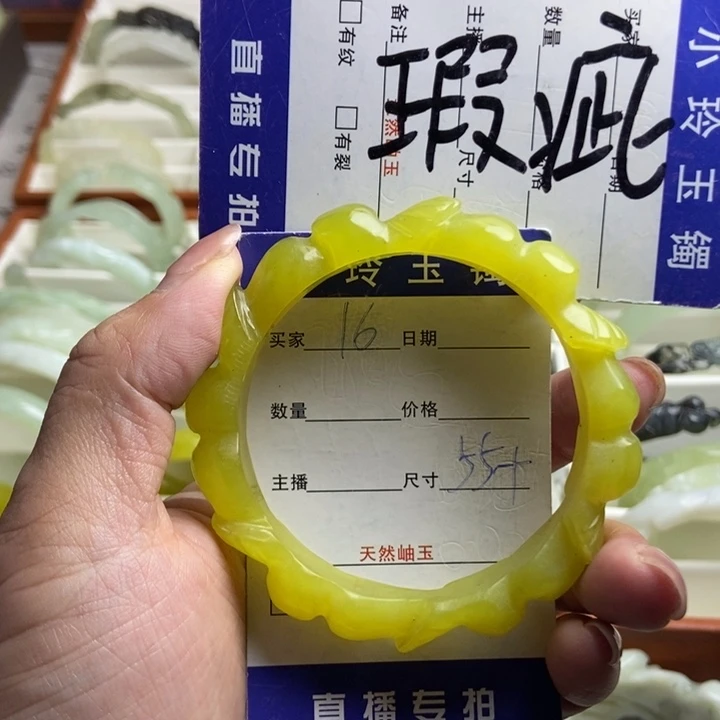 小玲玉镯
买家 日期
数量 价格
主播 尺寸
备注 然岫玉
有纹 有裂
直播专拍
瑕疵
玲玉镯
买家 16 日期
数量 价格
主播 尺寸 55+
天然岫玉
直播专拍